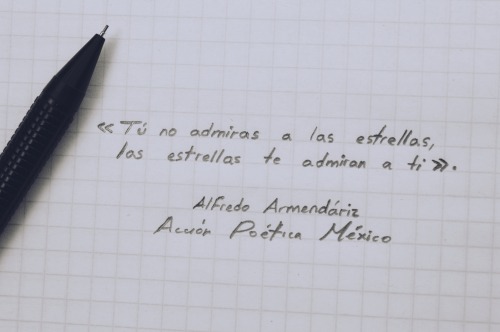 «Tú no admiras a las estrellas,
las estrellas te admiran a ti».
Alfredo Armendáriz
Acción Poética México